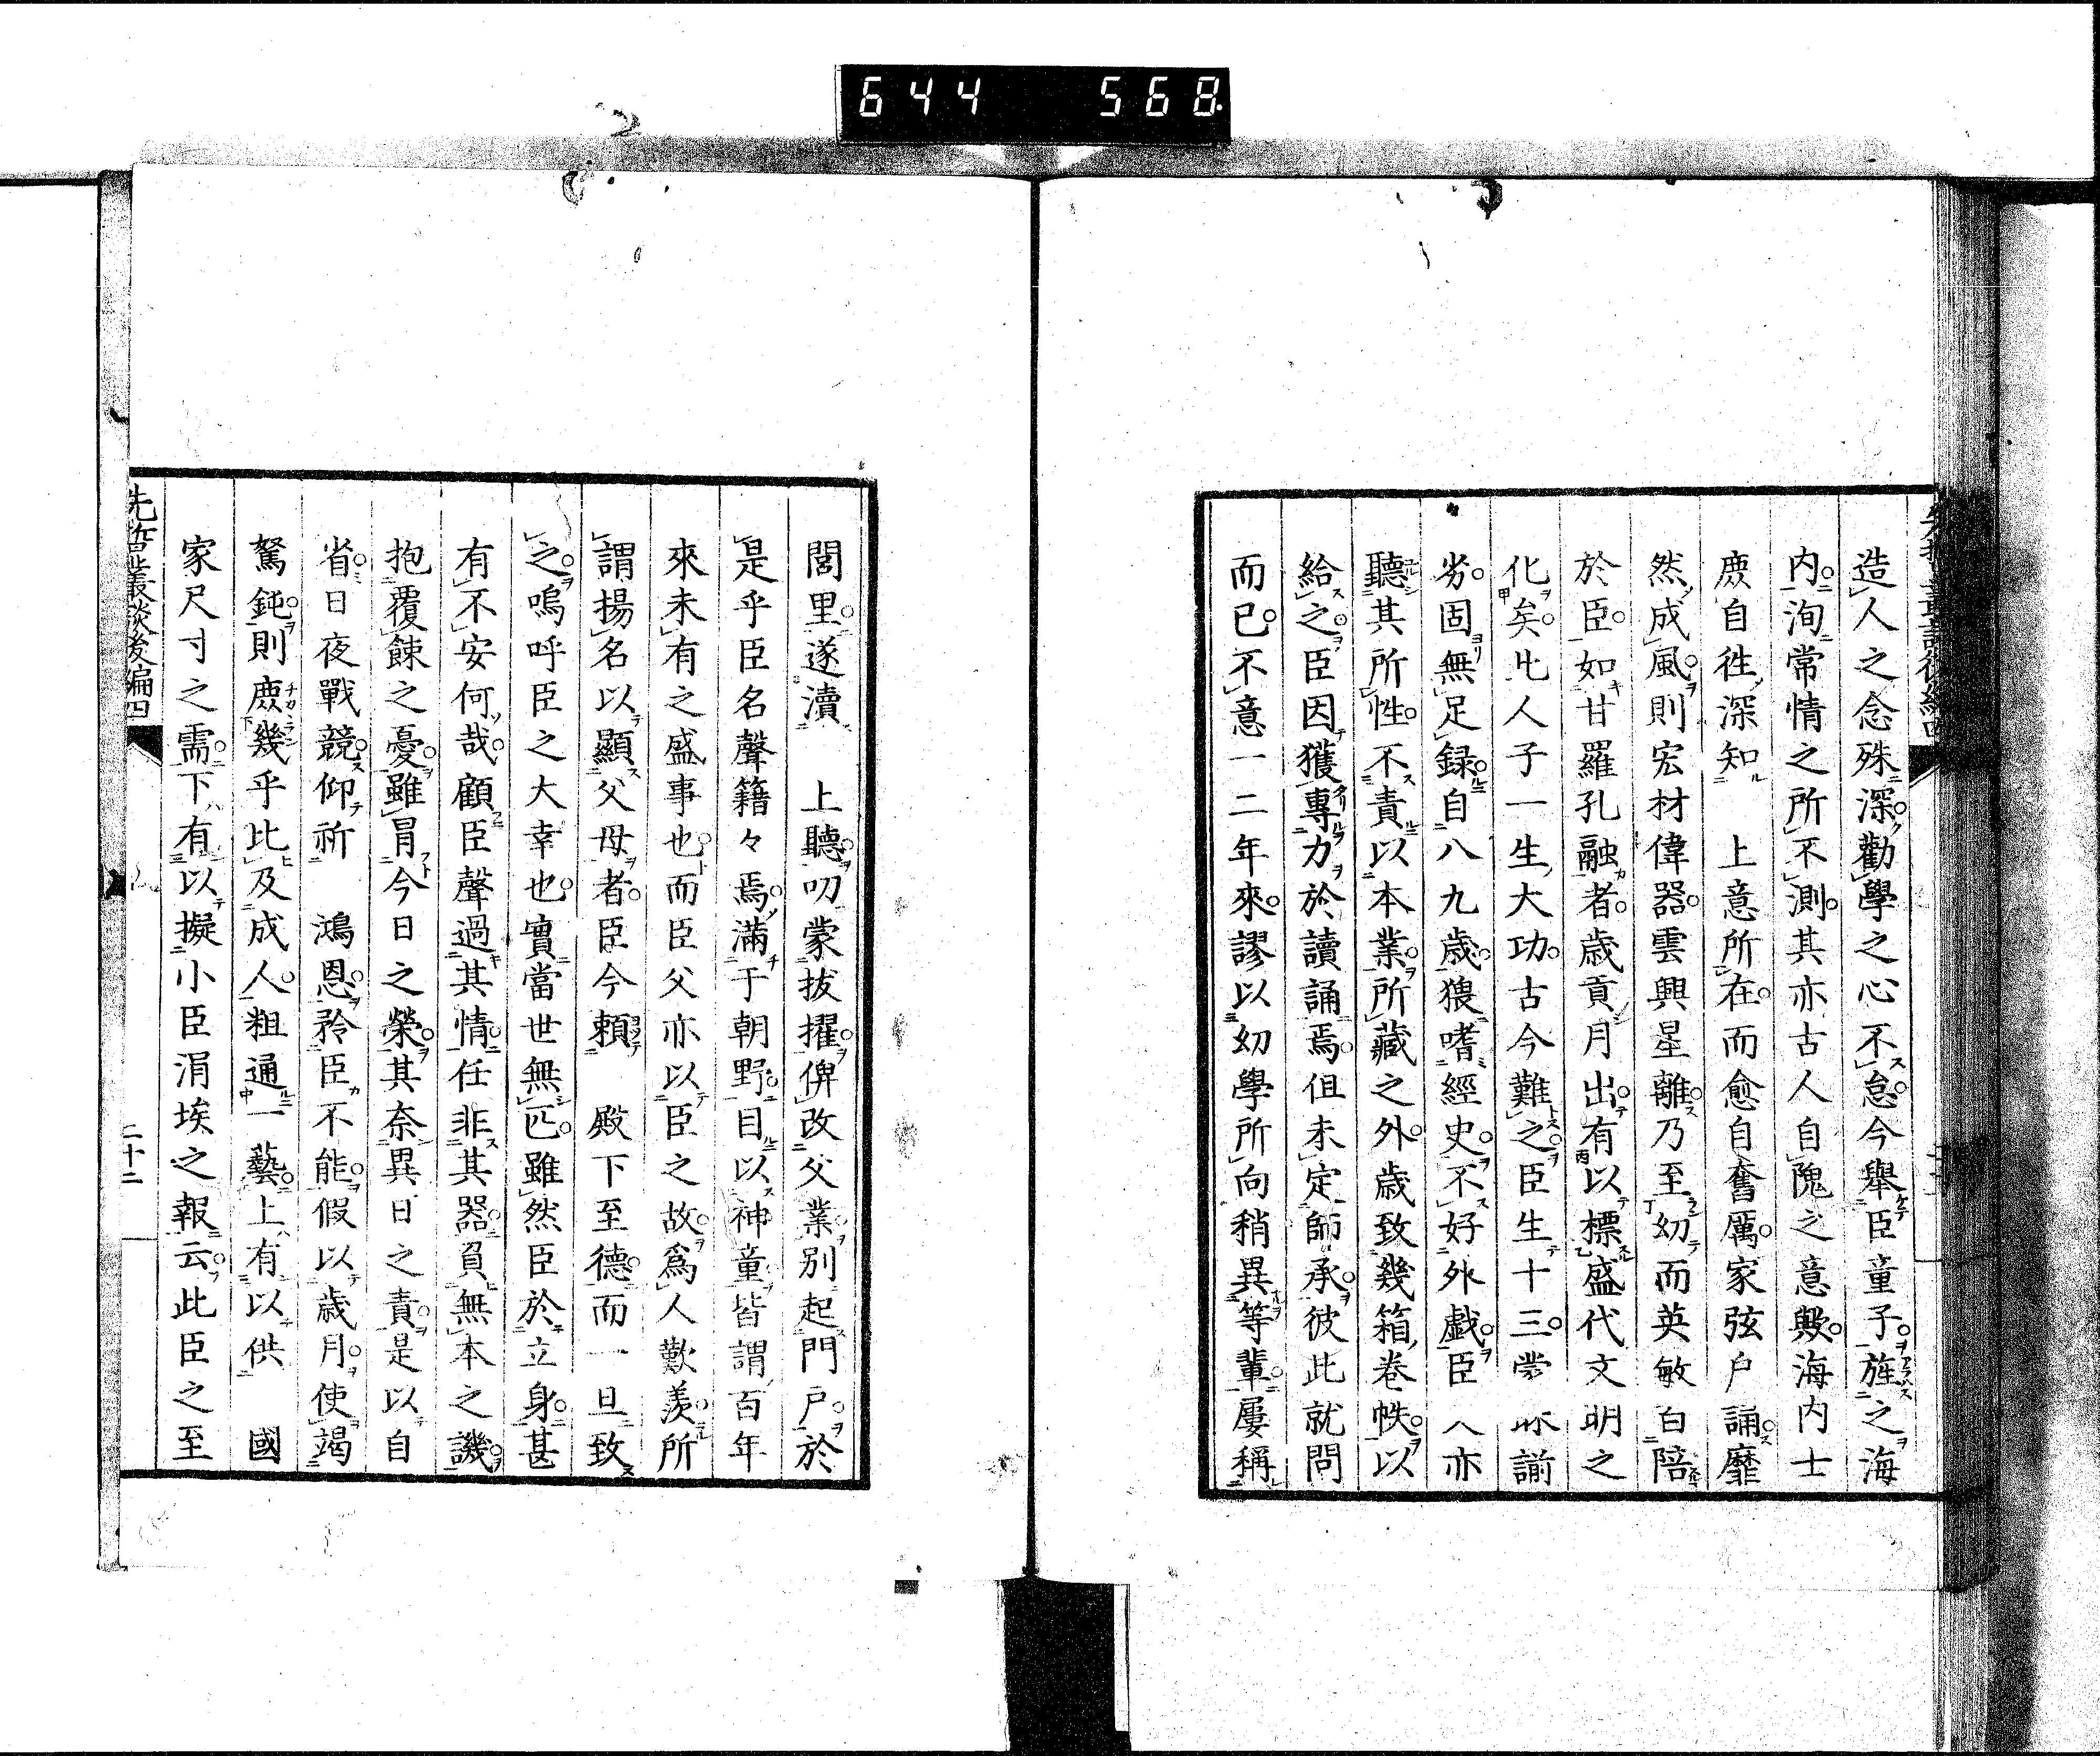 644 568
造人之念殊深勸學之心不怠今舉臣童子旌之海
内洵常情之所不測其亦古人自隗之意歟海内士
庶自徃深知　上意所在而愈自奮厲家弦戸誦靡
然成風則宏材偉器雲興星離乃至幼而英敏自陪
於臣如甘羅孔融者歳貢月出有以標盛代文明之
化矣此人子一生大功古今難之臣生十三嘗
劣固無足録自八九歳猥嗜經史不好外戯臣亦
聽其所性不責以本業所藏之外歳致幾箱卷帙以
給之臣因獲專力於讀誦焉但未定師承彼此就問
而已不意一二年來謬以幼學所向稍異等輩屢稱
閭里遂瀆　上聽叨蒙拔擢俾改父業別起門戸於
是乎臣名聲籍々焉滿于朝野目以神童皆謂百年
來未有之盛事也而臣父亦以臣之故爲人歎羨所
謂揚名以顯父母者臣今頼　殿下至德而一旦致
之嗚呼臣之大幸也實當世無匹雖然臣於立身甚
有不安何哉顧臣聲過其情任非其器負無本之譏
抱覆餗之憂雖冒今日之榮其奈異日之責是以自
省日夜戰競仰祈　鴻恩矜臣不能假以歳月使竭
駑鈍則庶幾乎比及成人粗通一藝上有以供　國
家尺寸之需下有以擬小臣涓埃之報云此臣之至
先哲叢談後編四
二十二